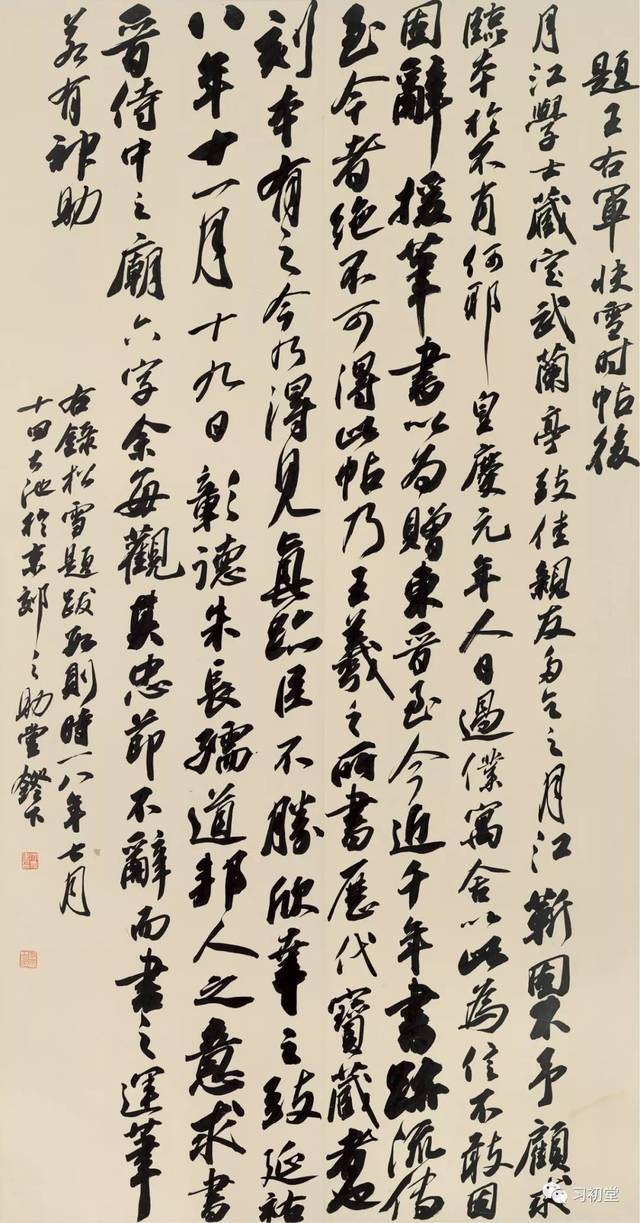 題王右軍快雪时帖後
月江學士藏定武蘭亭致佳親友多乞之月江靳固不予顧求
臨本於不肖何耶皇慶元年人日過僕寓舍以此為信不敢因
固辭援筆書以為贈東晉至今近千年書跡流傳
至今者絶不可得此帖乃王羲之所書歷代寶藏者也
刻本有之今乃得見真跡臣不勝欣幸之致延祐
八年十一月十九日彰德朱長孺道邦人之意求書
晋侍中之廟六字余每觀其忠節不辭而書之運筆
若有神助
右錄松雪題跋數則時一八年七月
十四大池於京郊之助堂鐙下
习初堂